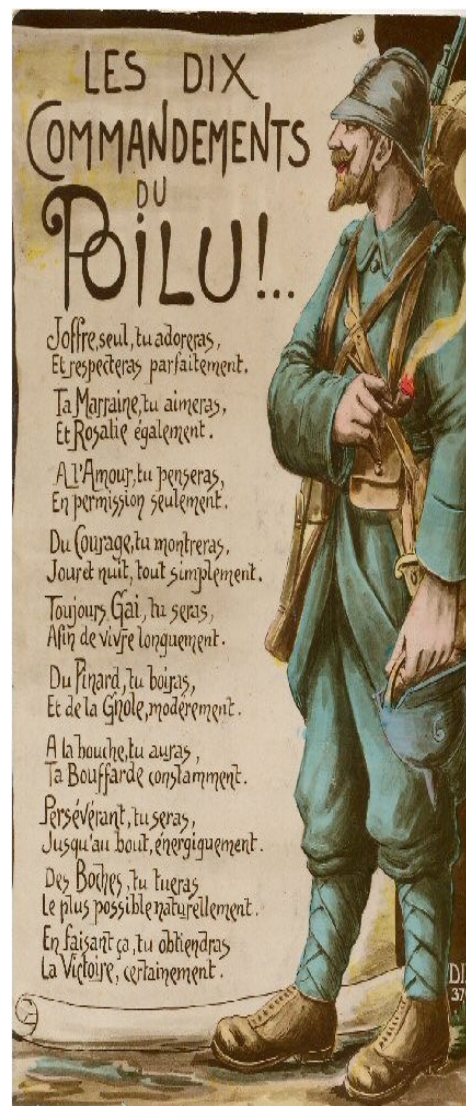 LES DIX
COMMANDEMENTS
DU
POILU!...
Joffre, seul, tu adoreras,
Et respecteras parfaitement.
Ta Marraine, tu aimeras,
Et Rosalie également.
A l'Amour, tu penseras,
En permission seulement.
Du Courage, tu montreras,
Jour et nuit, tout simplement.
Toujours Gai, tu seras,
Afin de vivre longuement.
Du Pinard, tu boiras,
Et de la Gnole, modérement.
A la bouche, tu auras,
Ta Bouffarde constamment.
Persévérant, tu seras,
Jusqu'au bout, énergiquement.
Des Boches, tu tueras
Le plus possible naturellement.
En faisant ça, tu obtiendras
La Victoire, certainement.